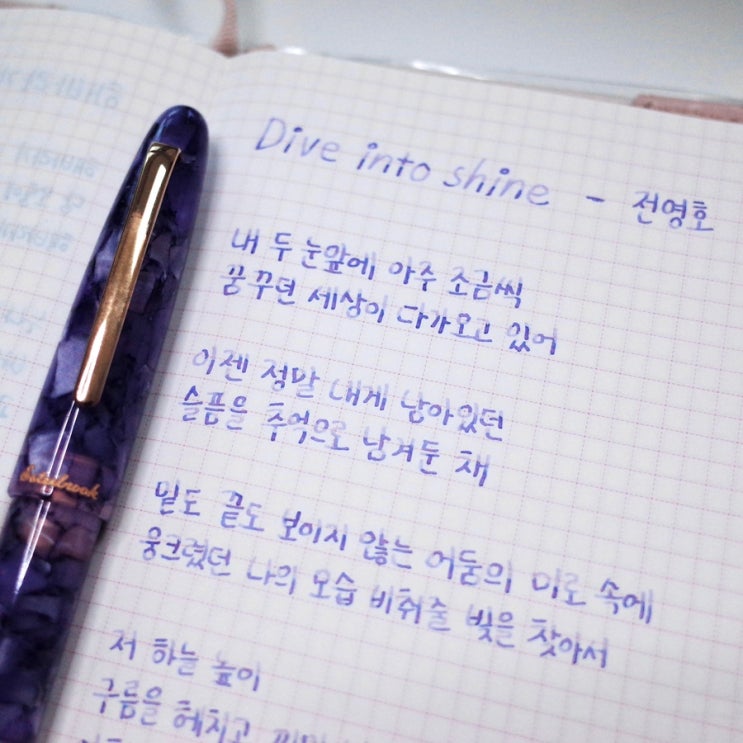 Dive into shine - 전영호
내 두 눈앞에 아주 조금씩
꿈꾸던 세상이 다가오고 있어
이젠 정말 내게 남아있던
슬픔을 추억으로 남겨둔 채
밑도 끝도 보이지 않는 어둠의 미로 속에
웅크렸던 나의 모습 비춰줄 빛을 찾아서
저 하늘 높이
구름을 헤치고
Esterbrook